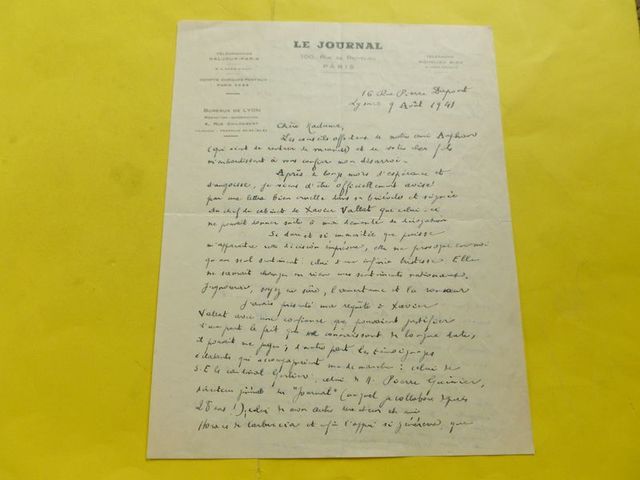 LE JOURNAL
100, RUE DE RICHELIEU
PARIS
COMPTE CHÈQUES POSTAUX
BUREAUX DE LYON
16 Rue Pierre Dupont
Lyon 9 Août 1941
Chère Madame,
Les conseils affectueux de notre ami
(qui vient de rentrer de vacances) et de votre cher fils
m'enhardissent à vous confier mon désarroi.
Après de longs mois d'espérance et
d'angoisse, je viens d'être officiellement avisé
par une lettre bien cruelle dans sa brièveté et signée
du chef de cabinet de Xavier Vallat que celui-ci
ne pouvait donner suite à ma demande de dérogation
Si dure et si imméritée que puisse
m'apparaître une décision imprévue, elle ne provoque en moi
qu'un seul sentiment : celui d'une infinie tristesse. Elle
ne saurait changer en rien mes sentiments nationaux.
J'ignorerai, soyez en sûre, l'amertume et la rancœur
J'avais présenté ma requête à Xavier
Vallat avec une confiance que pouvaient justifier
d'une part le fait que me connaissant de longue date,
il pouvait me juger ; d'autre part les témoignages
éclatants qui accompagnaient ma demande : celui de
S.E. le cardinal Gerlier, celui de M. Pierre Guimier,
directeur du "Journal" (auquel je collabore depuis
28 ans !), celui de mon autre directeur et ami
Horace de Carbuccia et enfin l'appui si généreux, que